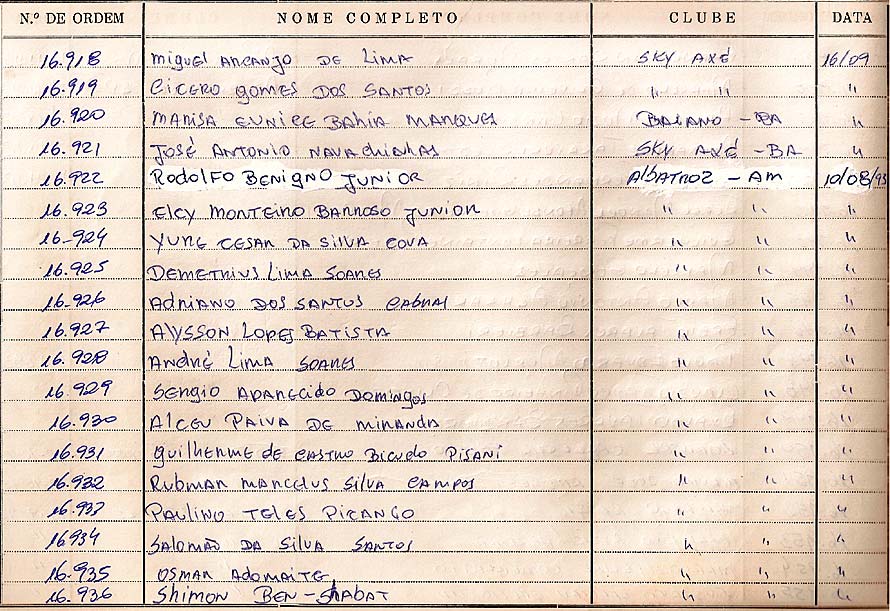 N.º DE ORDEM NOME COMPLETO CLUBE DATA
16.918 Miguel Arcanjo DE LIMA SKY AXÉ 16/09
16.919 CICERO GOMES DOS SANTOS " " "
16.920 MARISA EUNICE BAHIA MARQUES BAIANO - BA "
16.921 JOSÉ ANTONIO SKY AXÉ - BA "
16.922 RODOLFO BENIGNO JUNIOR AlBATROZ - AM 10/08/93
16.923 ELCY MONTEIRO BARROSO JUNIOR " " "
16.924 YURE CESAR DA SILVA COVA " " "
16.925 DEMETRIUS LIMA SOARES " " "
16.926 ADRIANO DOS SANTOS CABRAL " " "
16.927 ALYSSON LOPES BATISTA " " "
16.928 ANDRÉ LIMA SOARES " " "
16.929 SERGIO APARECIDO DOMINGOS " " "
16.930 ALCEU PAIVA DE MIRANDA " " "
16.931 GUILHERME DE CASTRO BICUDO PISANI " " "
16.932 RUBMAR MARCELUS SILVA CAMPOS " " "
16.933 PAULINO TELES PICANÇO " " "
16934 SALOMÃO DA SILVA SANTOS " " "
16.935 OSMAR ADOMAITE " " "
16.936 SHIMON BEN-SHABAT " " "